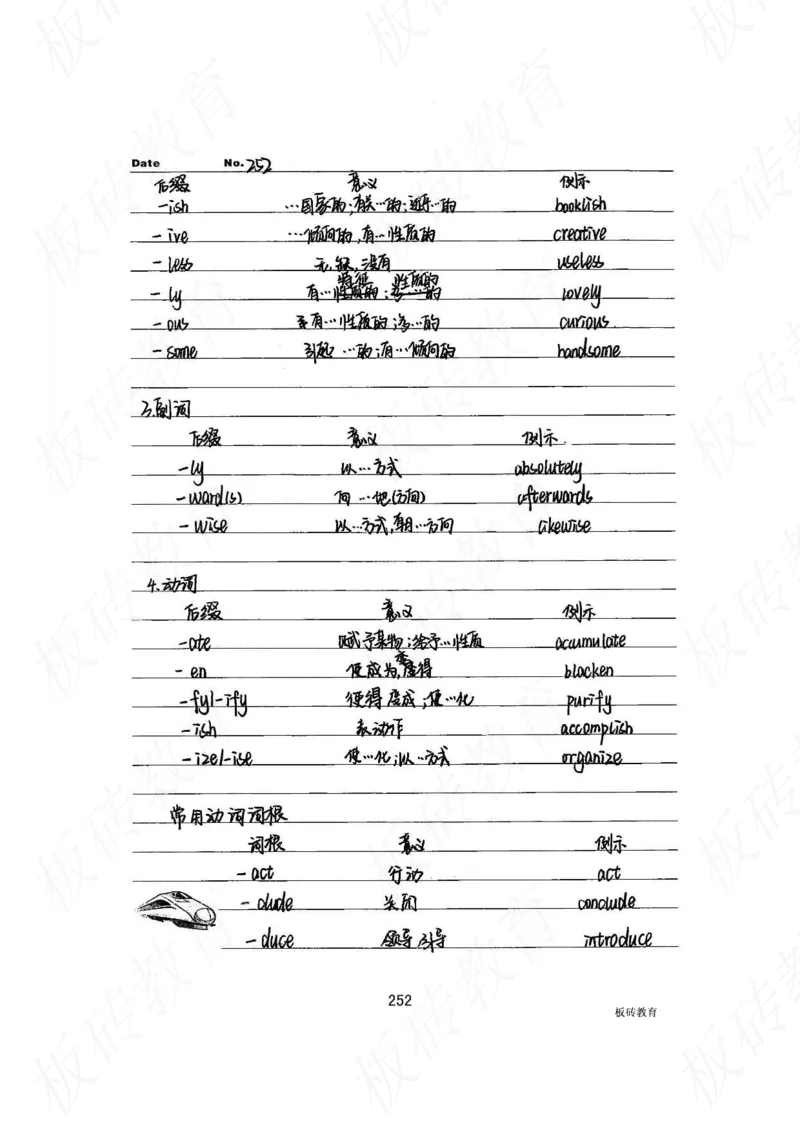 Date No. 252
后缀 意义 例示
-ish …国家的;有关…的;近乎…的 booklish
-ive …倾向的,有…性质的 creative
-less 无,缺,没有 useless
特征 性质的
-ly 有…性质的;多…的 lovely
-ous 有…性质的;多…的 curious
-some 引起…的;有…倾向的 handsome
3.副词
后缀 意义 例示
-ly 以…方式 absolutely
-ward(s) 向…地(方向) afterwards
-wise 以…方式,朝…方向 likewise
4.动词
后缀 意义 例示
-ate 赋予某物;给予…性质 accumulate
-en 使成为,变得 blacken
-fy/-ify 使得变成;使…化 purify
-ish 表动作 accomplish
-ize/-ise 使…化;以…方式 organize
常用动词词根
词根 意义 例示
-act 行动 act
-clude 关闭 conclude
-duce 领导 引导 introduce
252
板砖教育